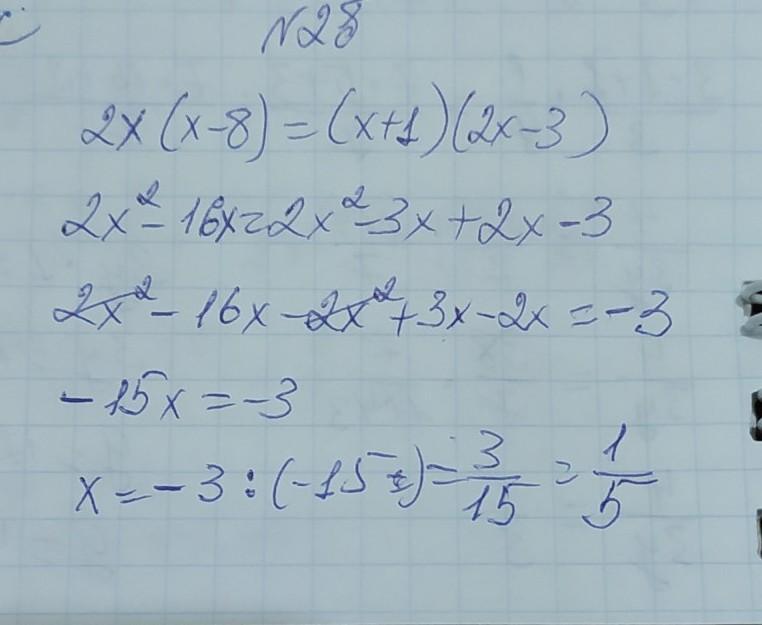 N28
2x(x-8)=(x+1)(2x-3)
2x²-16x=2x²-3x+2x-3
2x²-16x-2x²+3x-2x=-3
-15x=-3
x=-3:(-15)=3/15=1/5